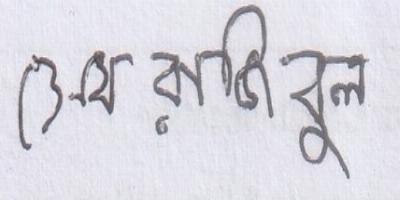 শেখ রাজিবুল